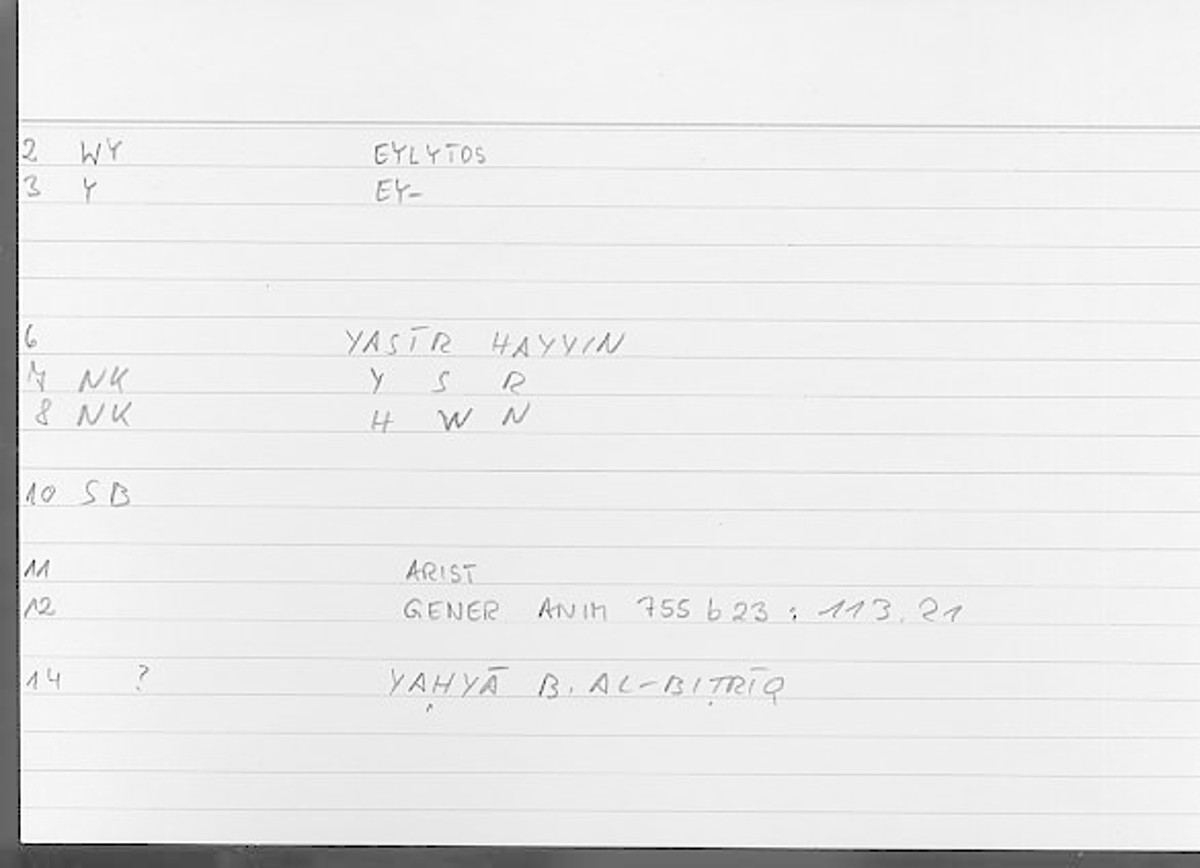 2 WY EYLYTOS
3 Y EY-
6 YASĪR HAYYIN
7 NK Y S R
8 NK H W N
10 SB
11 ARIST
12 GENER ANIM 755 b 23 : 113.21
14 ? YAḤYĀ B. AL-BIṬRĪQ